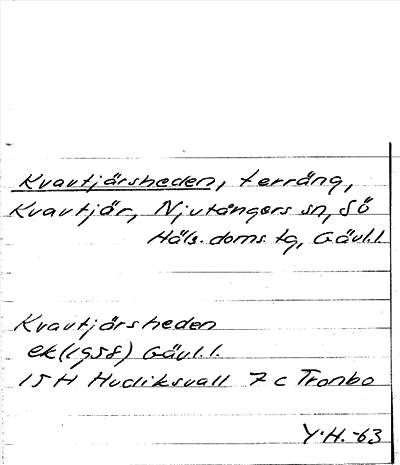 Kvavtjärsheden, terräng,
Kvavtjär, Njutångers sn, Sö
Häls. doms. tg, Gävl.l.
Kvavtjärsheden
ek(1958) Gävl.l.
15H Hudiksvall 7c Tronbo
Y.H.-63